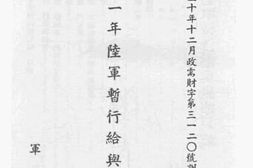 十年十二月政需財字第三一二〇號
一年陸軍暫行給與
軍